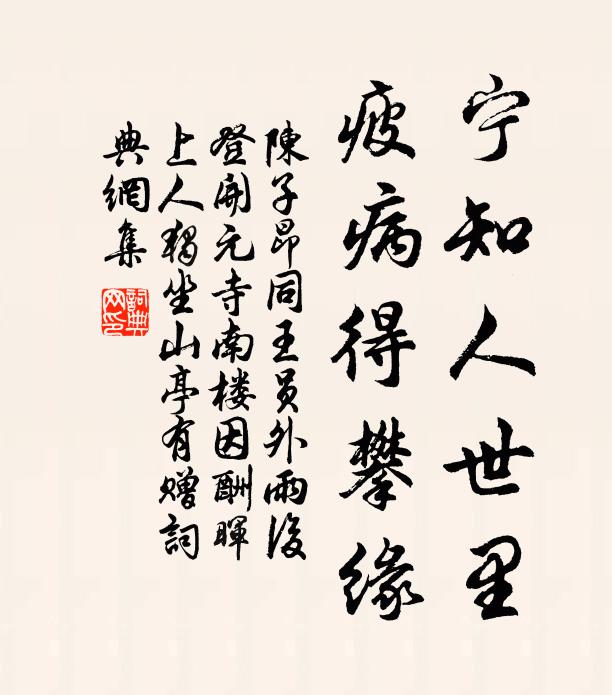 宁知人世里
疲病得攀缘
陳子昂同王员外雨後
登開元寺南楼因酬暉
上人獨坐山亭有赠詞
典網集
詞典网印